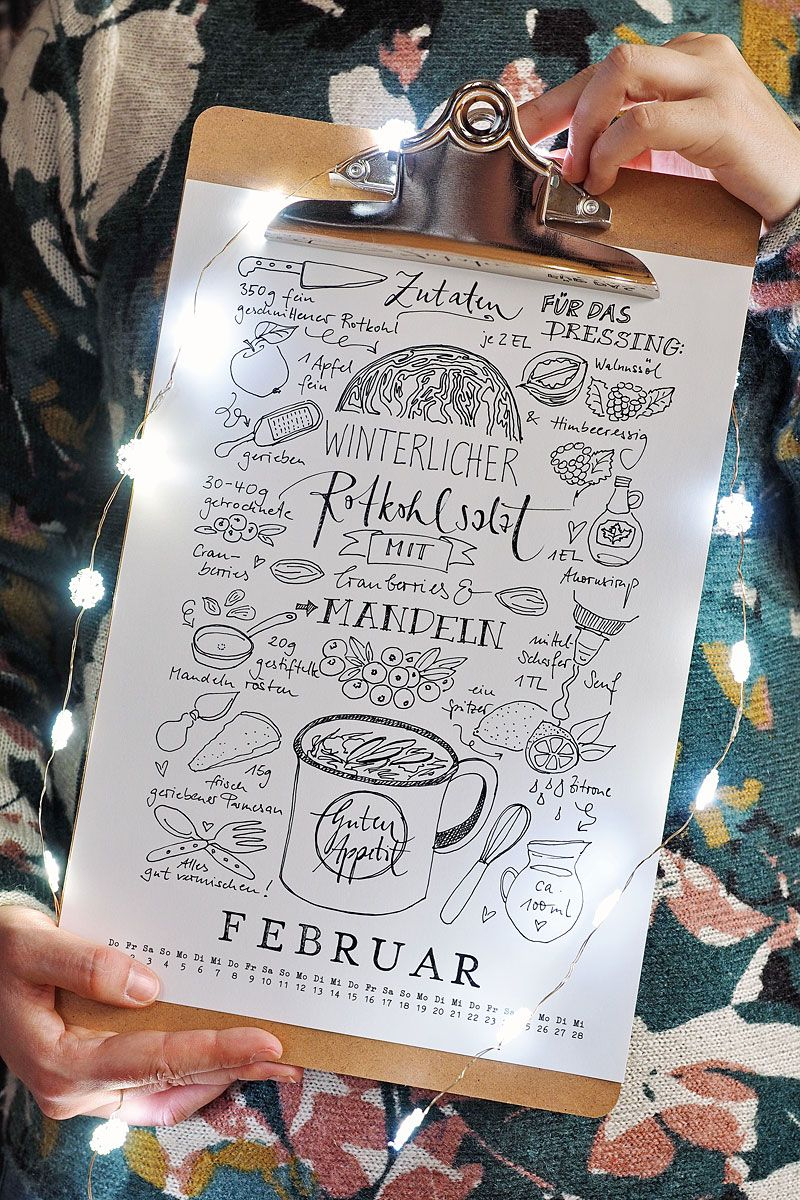 Zutaten
350g fein
geschnittener Rotkohl
FÜR DAS
DRESSING:
je 2 EL
Walnussöl
1 Apfel
fein
& Himbeeressig
gerieben
WINTERLICHER
30-40g
getrocknete
Rotkohlsalat
MIT
1EL
Ahornsirup
Cran-
berries
Cranberries &
MANDELN
20g
gestiftelte
Mandeln rösten
mittel-
scharfer
1TL
Senf
ein
Spritzer
Zitrone
15g
frisch
geriebener Parmesan
Guten
Appetit
Alles
gut vermischen!
ca.
100ml
FEBRUAR
Do Fr Sa So Mo Di Mi Do Fr Sa So Mo Di Mi Do Fr Sa So Mo Di Mi Do Fr Sa Mo Di Mi
2 3 4 5 6 7 8 9 10 11 12 13 14 15 16 17 18 19 20 21 22 23 25 26 27 28